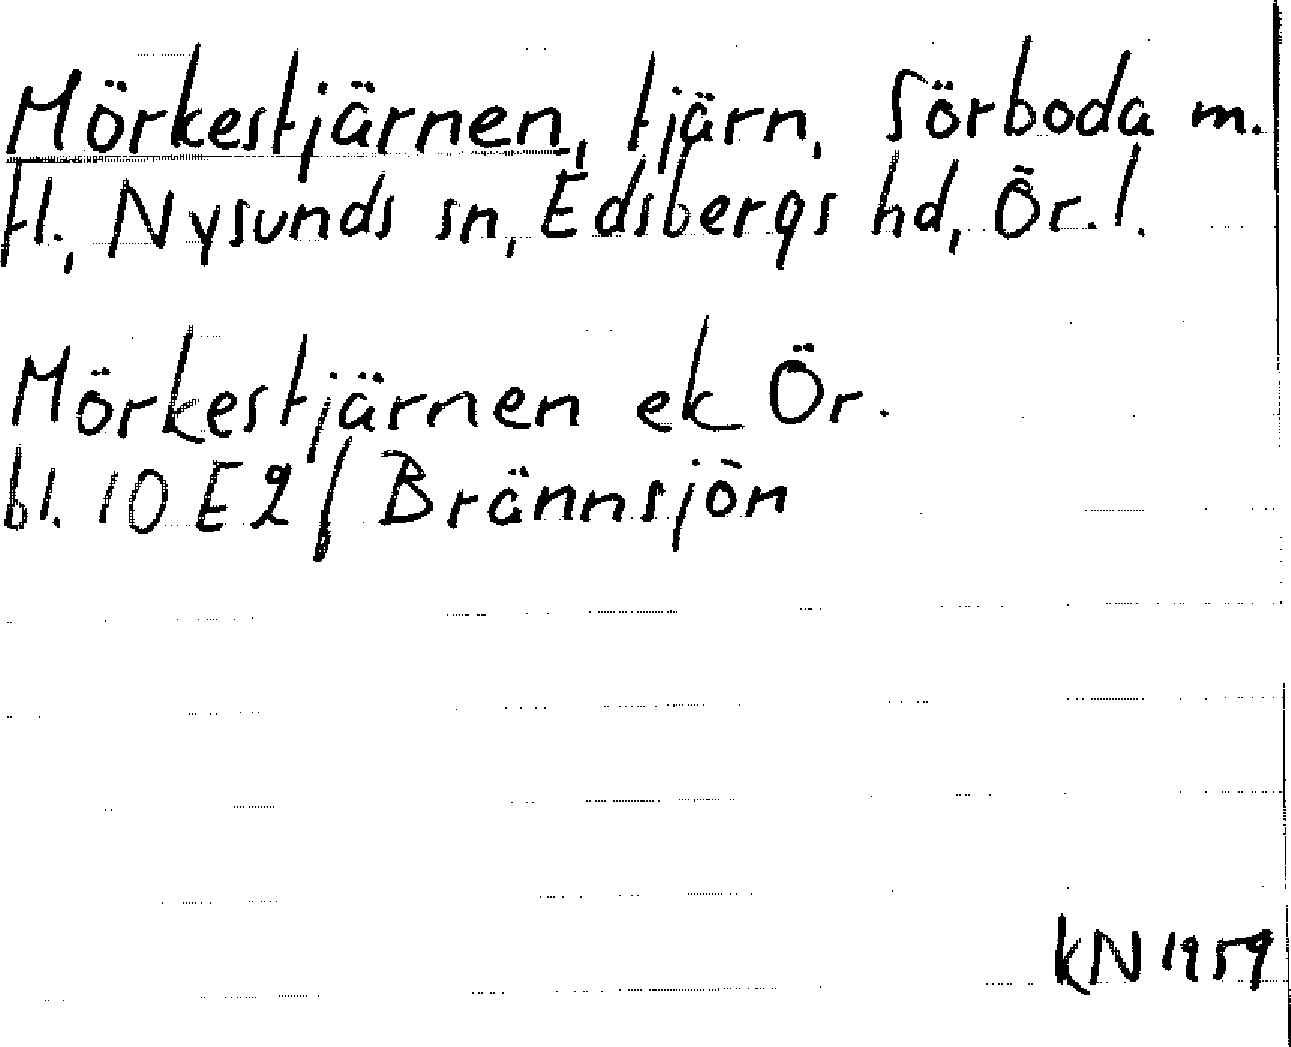 Mörkestjärnen, tjärn, Sörboda m.
fl., Nysunds sn, Edsbergs hd, Ör. l.
Mörkestjärnen ek Ör.
bl. 10 E2f Brännsjön
KN 1959